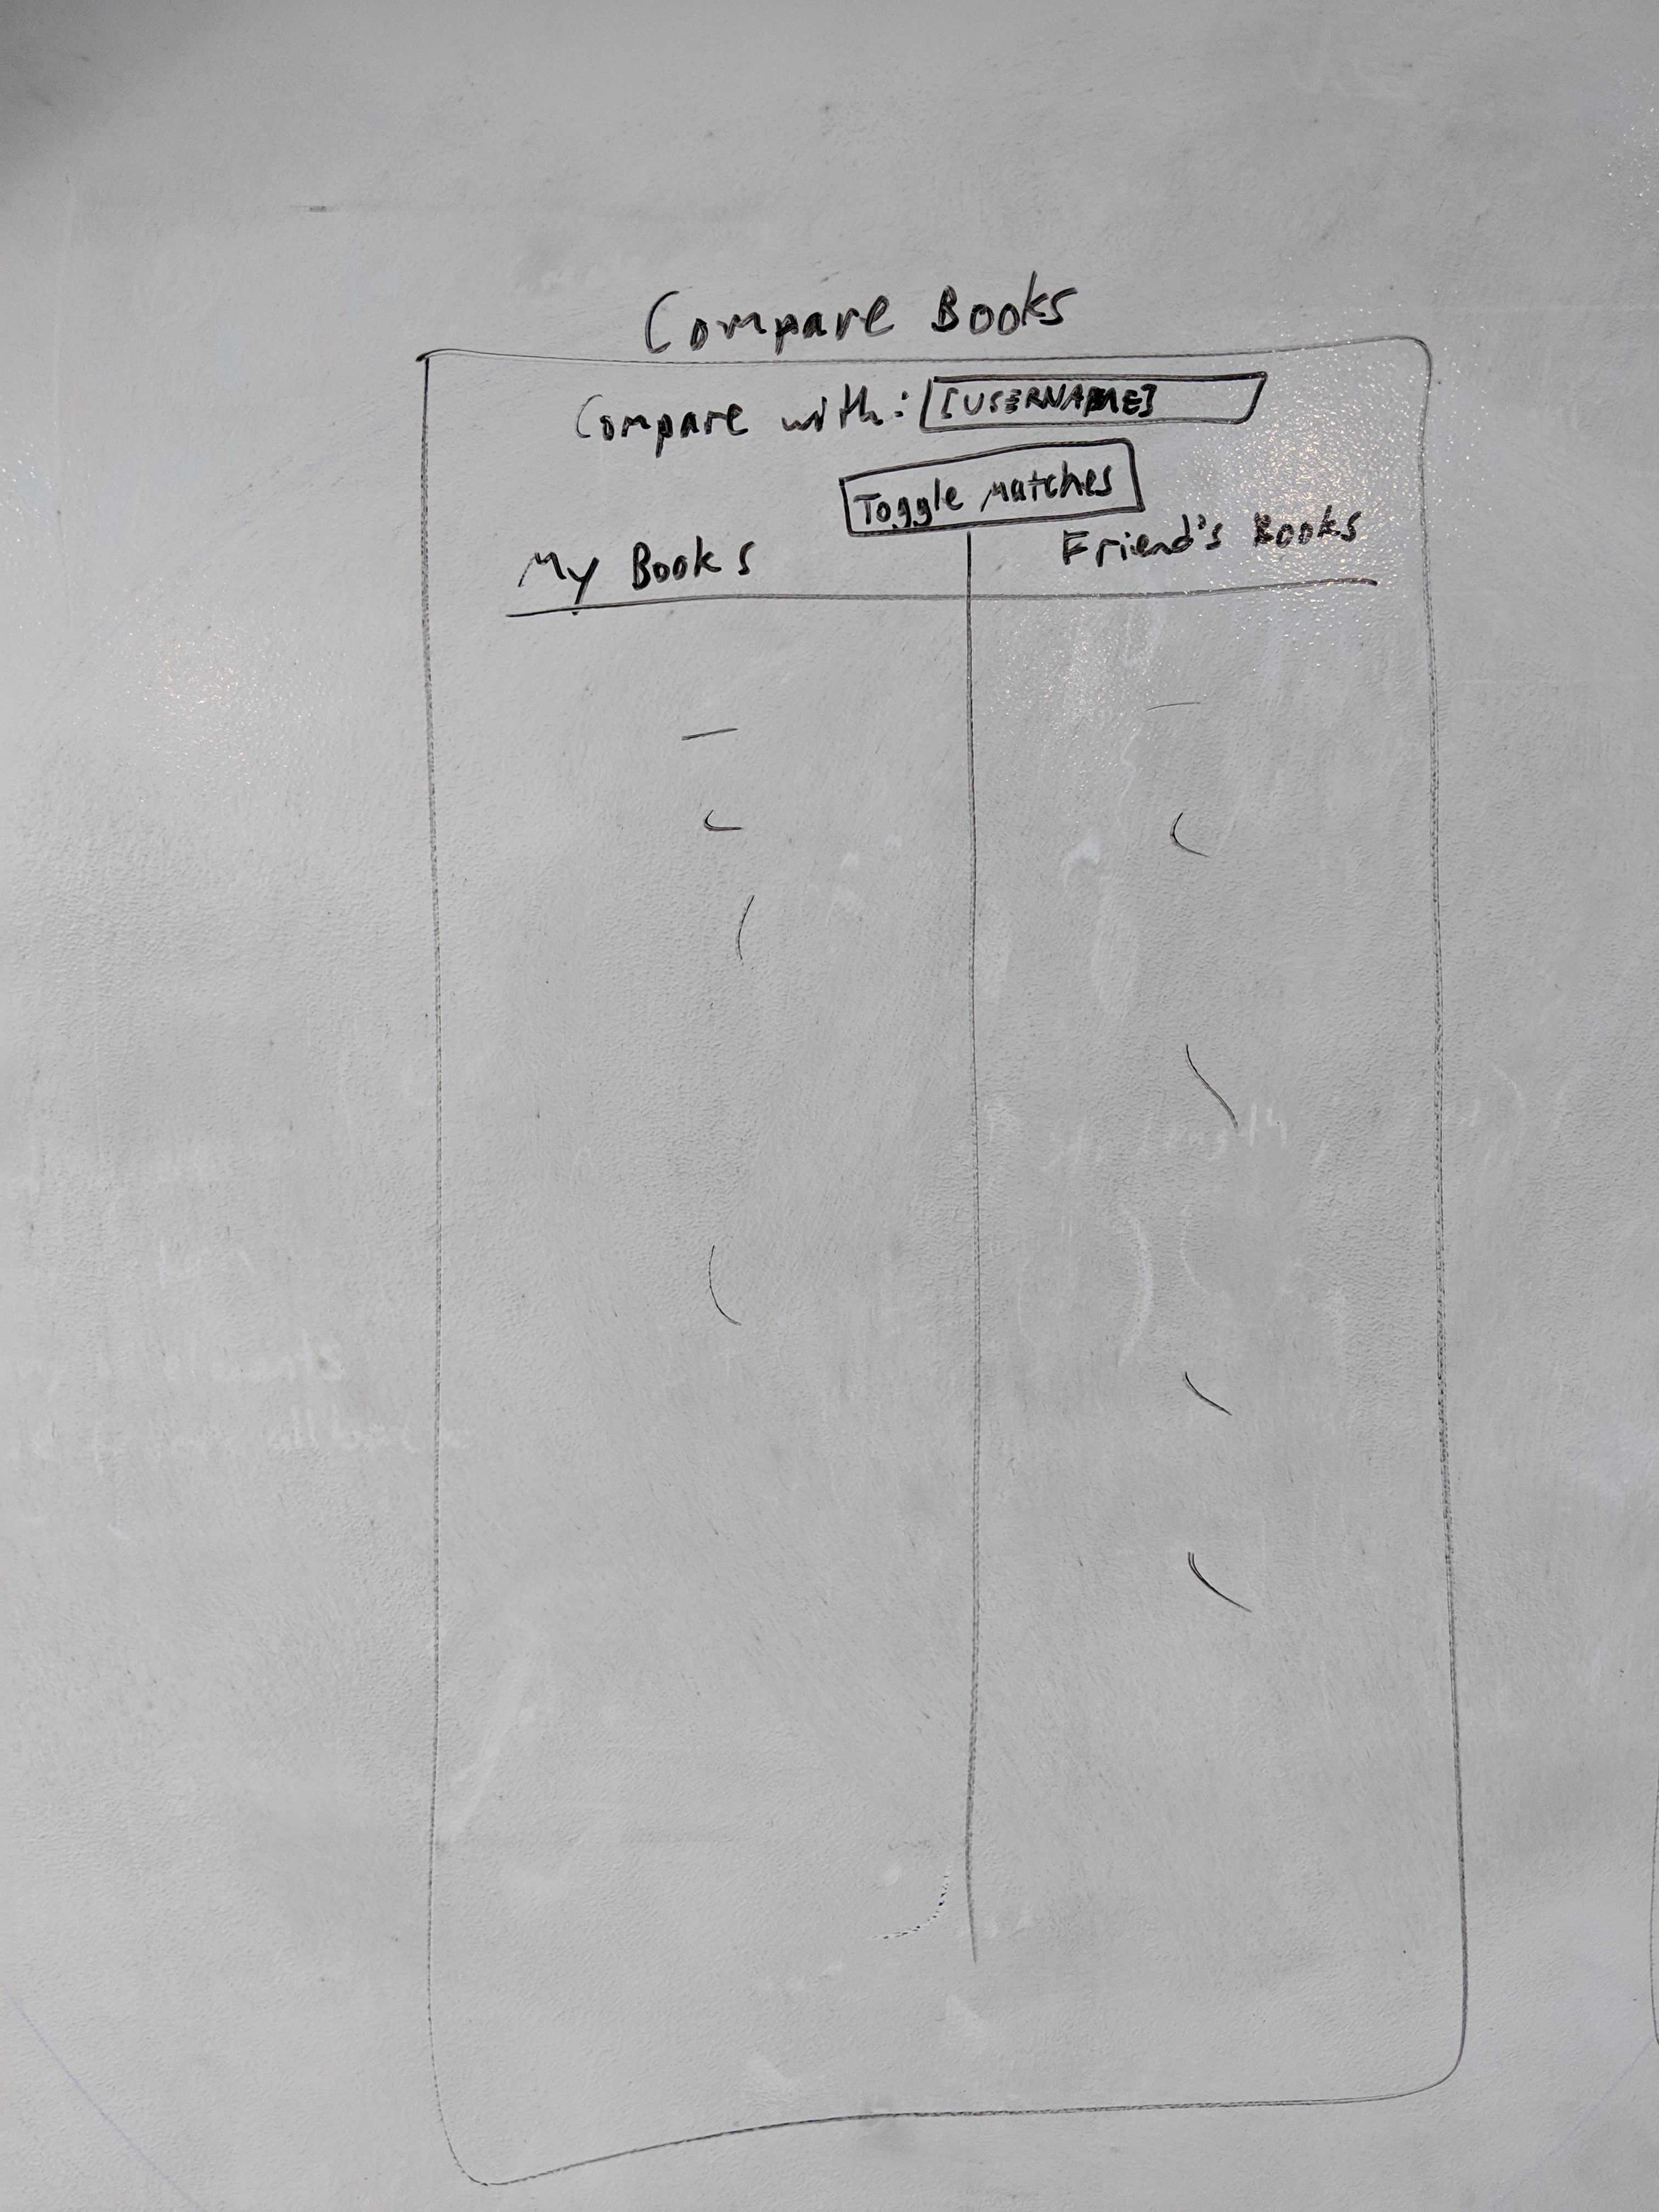 Compare Books
Compare with: [USERNAME]
Toggle Matches
My Books
Friend's Books